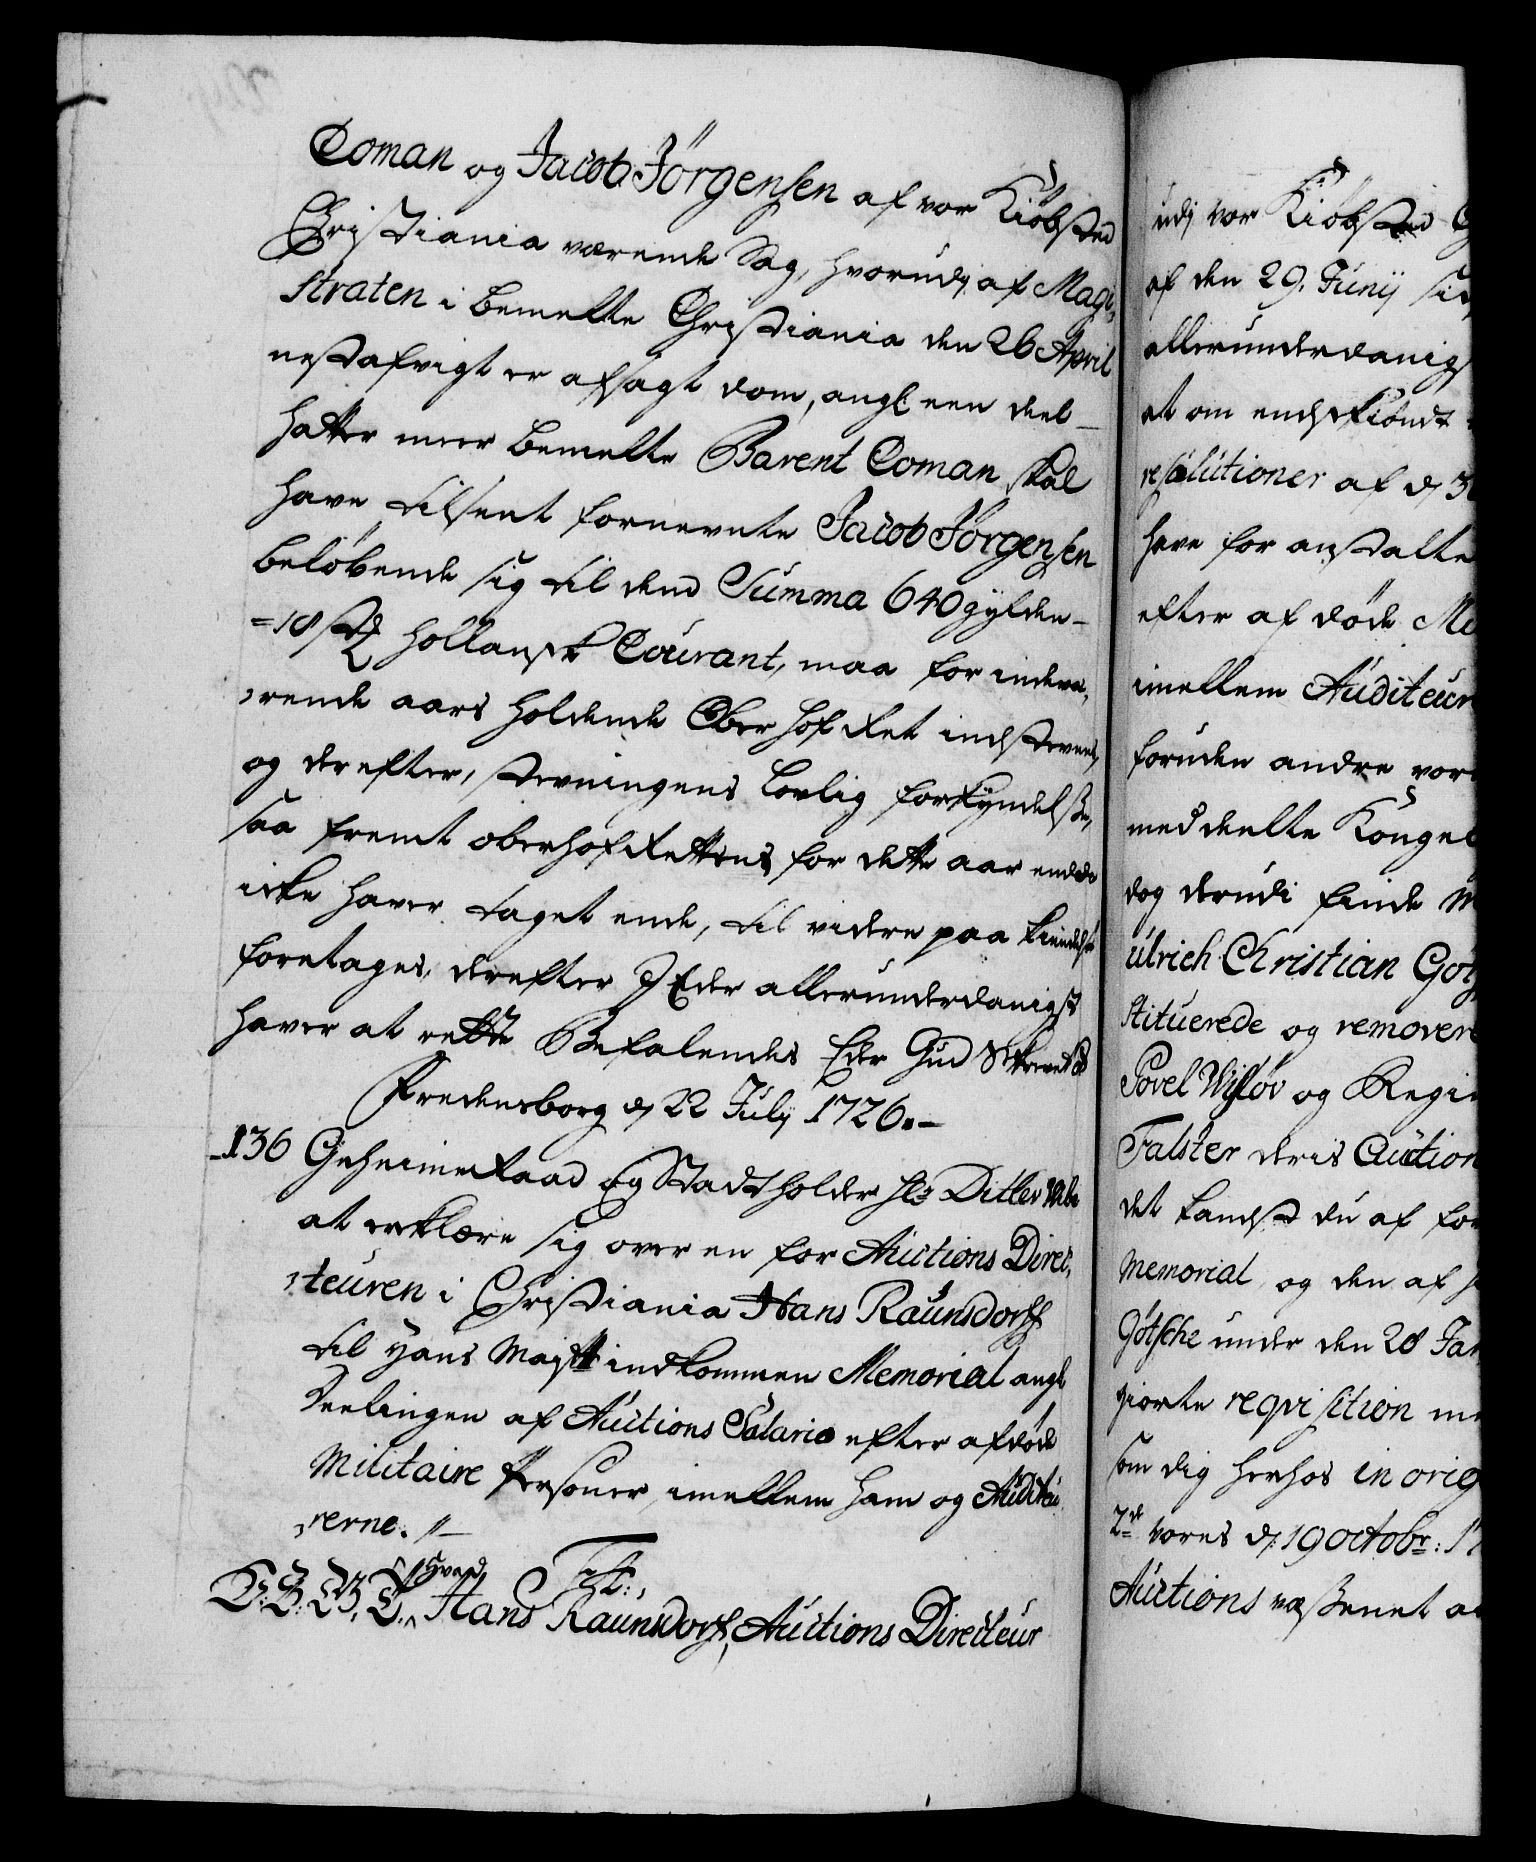 Coman og Jacob Jörgensen af vor Kiöbsted
Christiania værende Sag, hvorudj af Magi-
straten i bemelte Christiania den 26 April
nestafvigt er afsagt dom, angl: een deel
hatter meer bemelte Barent Coman skal
have tilsent fornevnte Jacob Jörgensen
beløbende sig til dend Summa 640 gylden
18 st: hollansk Courant, maa for indevæ-
rende aars holdende Oberhof Ret indstevnes,
og derefter, stevningens lovlig forkyndelse,
saa fremt oberhofRettens for dette aar endda
icke haver taget ende, til videre paa kiendelse
foretages, derefter I Eder allerunderdanigst
haver at rette Befalendes Eder Gud Skrevet paa
Fredensborg d 22 Julij 1726.
136 GeheimeRaad og Stadtholder Hr Ditlev Wibe
at erklære sig over en for Auctions Direc-
teuren i Christiania Hans Raunsdorff
til Hans Majtt indkommen Memorial angl
Deelingen af Auctions Salario efter afdøde
Militaire Personer, imellem ham og Auditeu-
rerne.
Tit:,
Hvad
D: G: V: T: Hans Raunsdorff, Auctions Directeur
udj vor Kiöbsted
af den 29. Junij
allerunderdanigst
at om endskiöndt
resolutioner af d 3
have for anstalte
efter af døde
imellem Auditeur
foruden andre vor
meddeelte Kongel
dog derudi finde
Ulrich Christian
stituerede og removere
Povel og
Falster deris Auction
det Landst du af for
Memorial og den af
Götsche under den 28 Jan
giorte reqvisition
som dig herhos in orig
2de vores d: 19 octobr: 17
Auctions væsenet